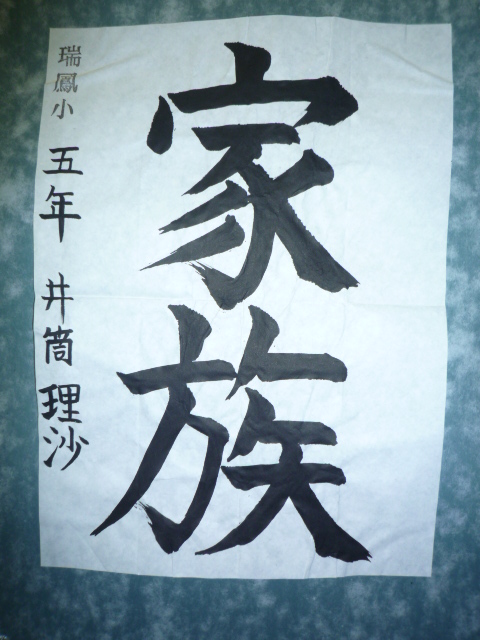 家族
瑞鳳小 五年 井筒 理沙